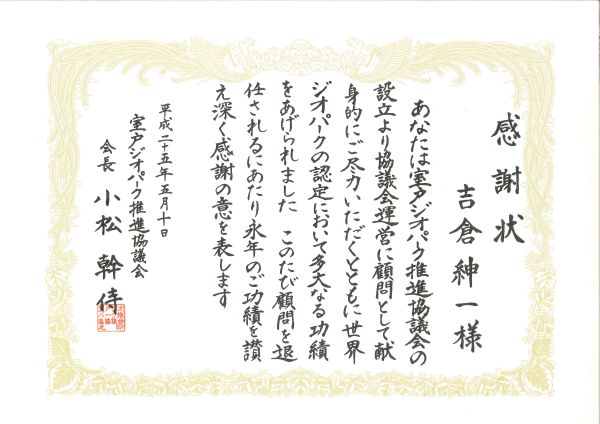 感謝状
吉倉紳一様
あなたは室戸ジオパーク推進協議会の
設立より協議会運営に顧問として献
身的にご尽力いただくとともに世界
ジオパークの認定において多大なる功績
をあげられました このたび顧問を退
任されるにあたり永年のご功績を讃
え深く感謝の意を表します
平成二十五年五月十日
室戸ジオパーク推進協議会
会長 小松幹侍